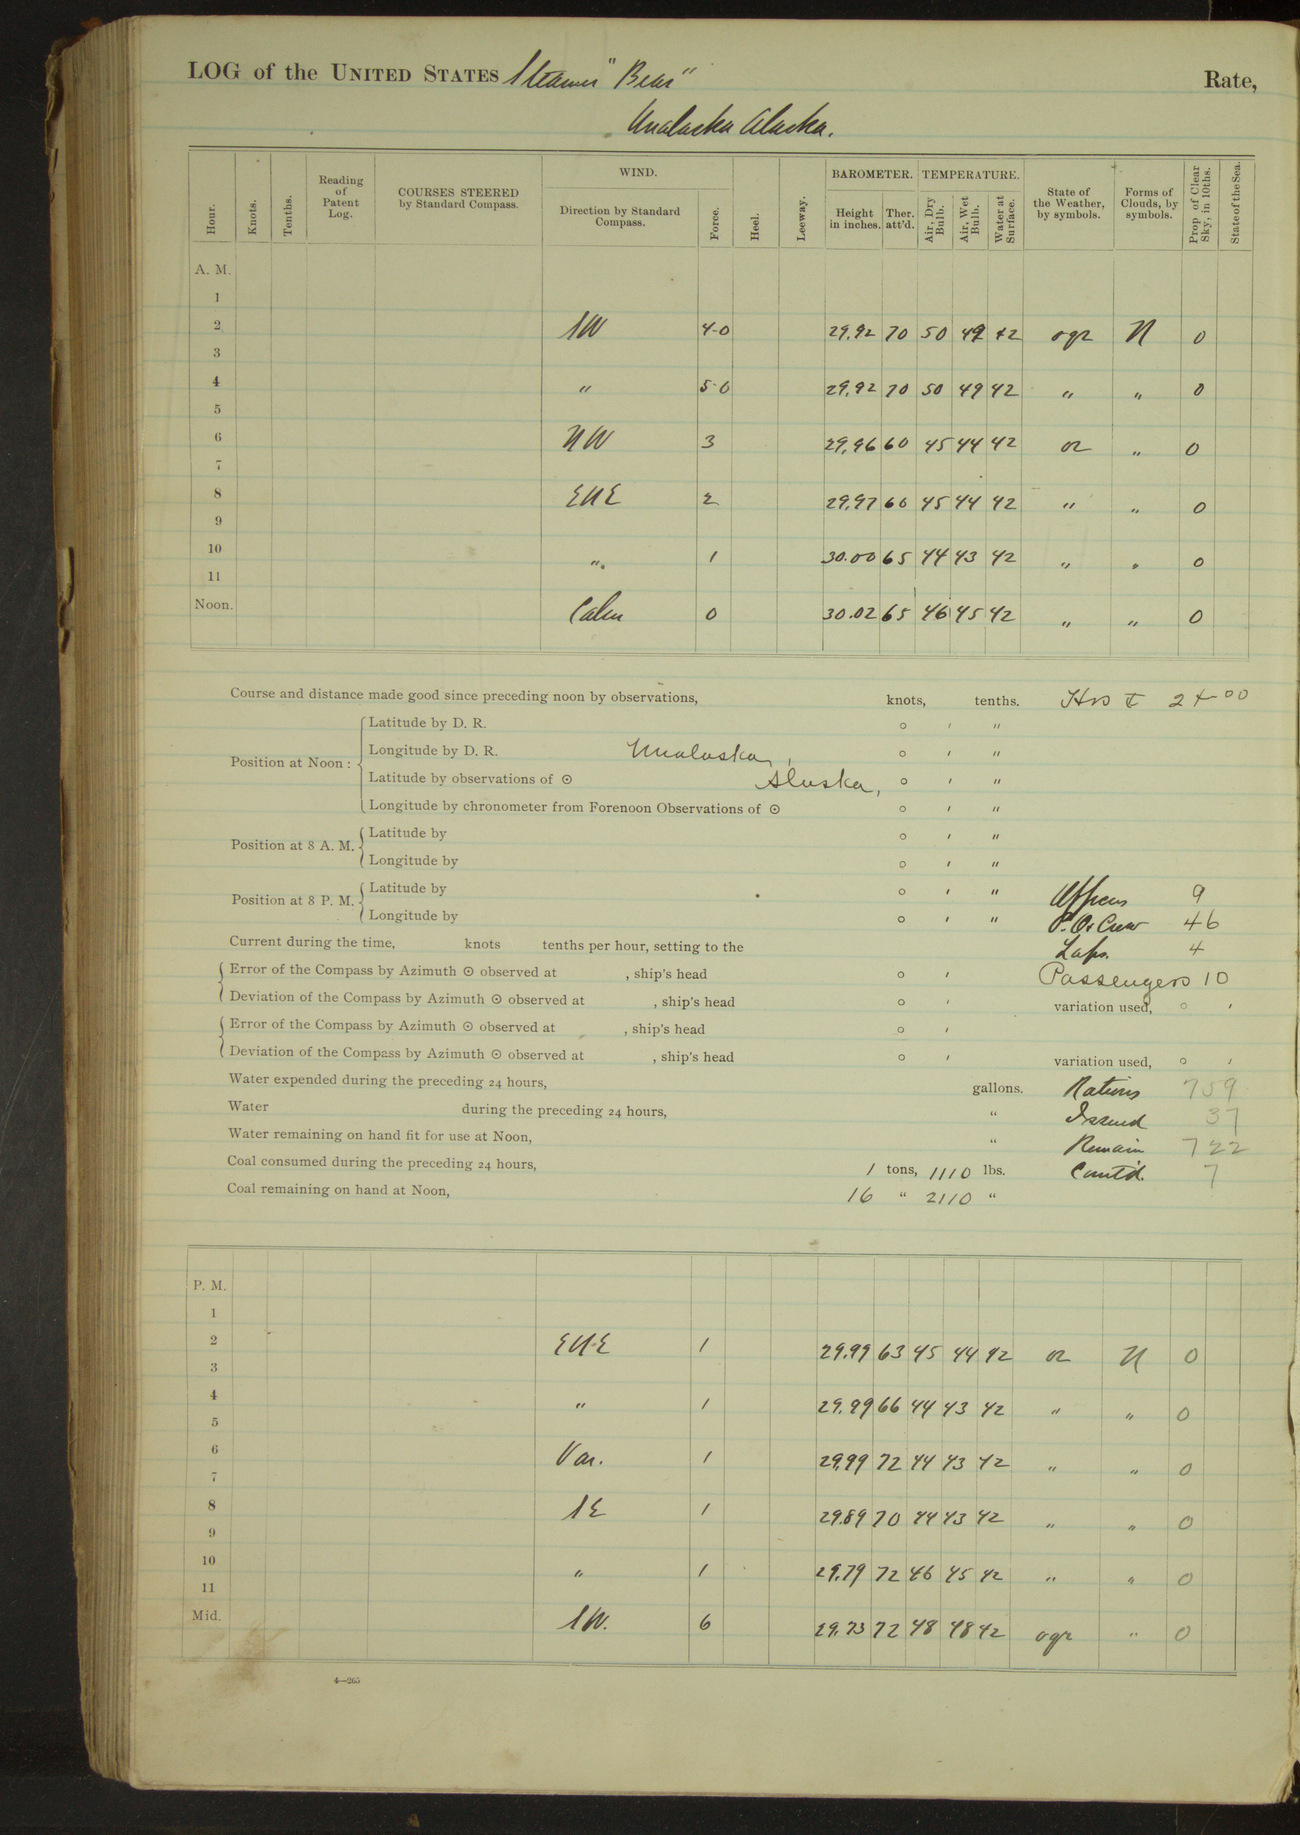 LOG of the UNITED STATES Steamer "Bear" Rate,
Unalaska Alaska.
Hour. Knots. Tenths. Reading of Patent Log. COURSES STEERED by Standard Compass. WIND. Direction by Standard Compass. Force. Heel. Leeway. BAROMETER. Height in inches. Ther. att'd. TEMPERATURE. Air, Dry Bulb. Air, Wet Bulb. Water at Surface. State of the Weather, by symbols. Forms of Clouds, by symbols. Prop of Clear Sky, in 10ths. State of the Sea.
A. M.
1
2 SW 4-0 29.92 70 50 49 42 ogr N 0
3
4 " 5-0 29.92 70 50 49 42 " " 0
5
6 NW 3 29.96 60 45 44 42 or " 0
7
8 ENE 2 29.97 60 45 44 42 " " 0
9
10 " 1 30.00 65 44 43 42 " " 0
11
Noon. Calm 0 30.02 65 46 45 42 " " 0
Course and distance made good since preceding noon by observations, knots, tenths. 24-00
Position at Noon :
Latitude by D. R. ° ′ ″
Longitude by D. R. Unalaska, ° ′ ″
Latitude by observations of ⊙ Alaska, ° ′ ″
Longitude by chronometer from Forenoon Observations of ⊙ ° ′ ″
Position at 8 A. M.
Latitude by ° ′ ″
Longitude by ° ′ ″
Position at 8 P. M.
Latitude by ° ′ ″ Officers 9
Longitude by ° ′ ″ P. O. & Crew 46
Current during the time, knots tenths per hour, setting to the 4
Error of the Compass by Azimuth ⊙ observed at , ship's head ° ′ Passengers 10
Deviation of the Compass by Azimuth ⊙ observed at , ship's head ° ′ variation used, ° ′
Error of the Compass by Azimuth ⊙ observed at , ship's head ° ′
Deviation of the Compass by Azimuth ⊙ observed at , ship's head ° ′ variation used, ° ′
Water expended during the preceding 24 hours, gallons. Rations 759
Water during the preceding 24 hours, " Issued 37
Water remaining on hand fit for use at Noon, " Remain 722
Coal consumed during the preceding 24 hours, 1 tons, 1110 lbs. Comt'd. 7
Coal remaining on hand at Noon, 16 " 2110 "
P. M.
1
2 ENE 1 29.99 63 45 44 42 or N 0
3
4 " 1 29.99 66 44 43 42 " " 0
5
6 Var. 1 29.99 72 44 43 42 " " 0
7
8 SE 1 29.89 70 44 43 42 " " 0
9
10 " 1 29.79 72 46 45 42 " " 0
11
Mid. SW. 6 29.73 72 48 48 42 ogr " 0
4—265